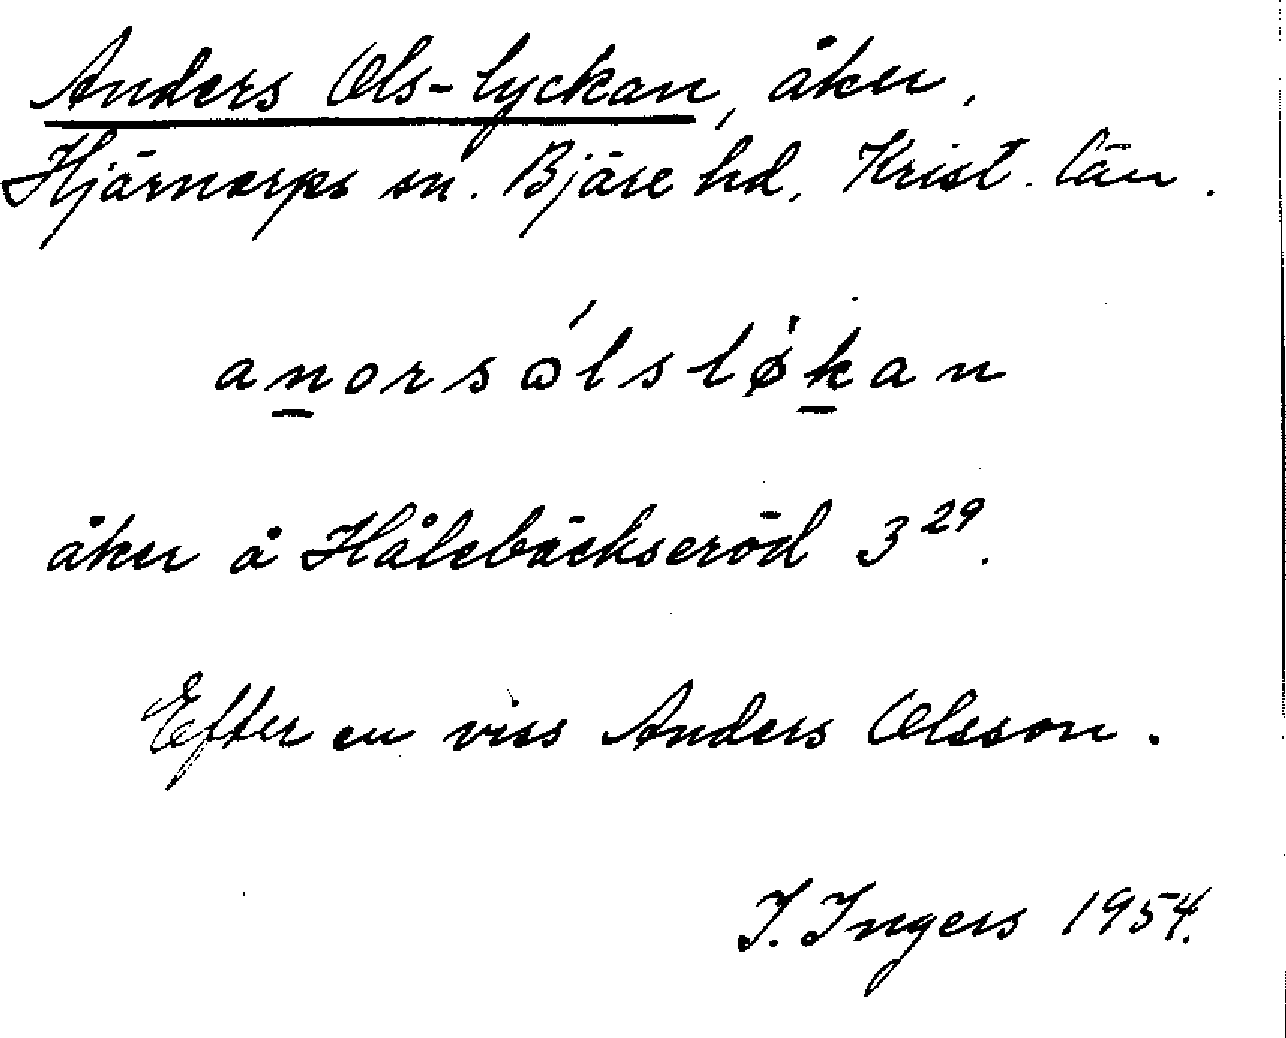 Anders Ols-lyckan, åker,
Hjärnarps sn. Bjäre hd, Krist. län.
anorsólsløkan
åker å Hålebäckseröd 3 29.
Efter en viss Anders Olsson.
I. Ingers 1954.